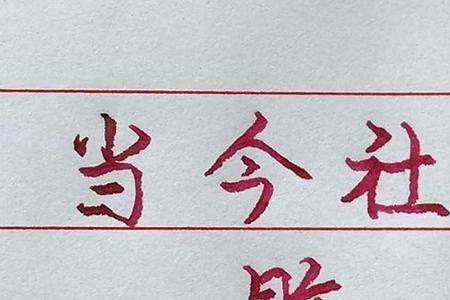 当今社